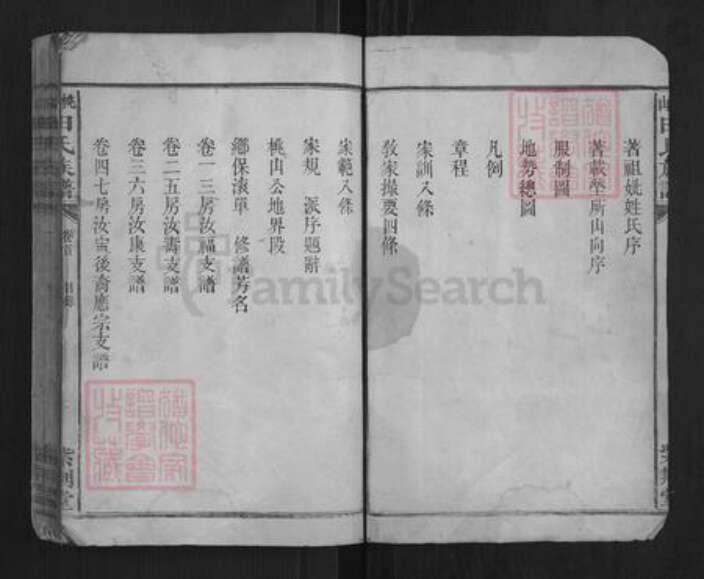 著祖妣姓氏序
著載塋所山向序
服制圖
地勢總圖
凡例
章程
家訓八條
教家撮要四條
家範八條
家規 派序題辭
桃山公地界段
鄉保滾單 修譜芳名
卷一三房汝福支譜
卷二五房汝壽支譜
卷三六房汝康支譜
卷四七房汝寅後裔應宗支譜
田氏族譜 卷首 目錄 紫荊堂
FamilySearch